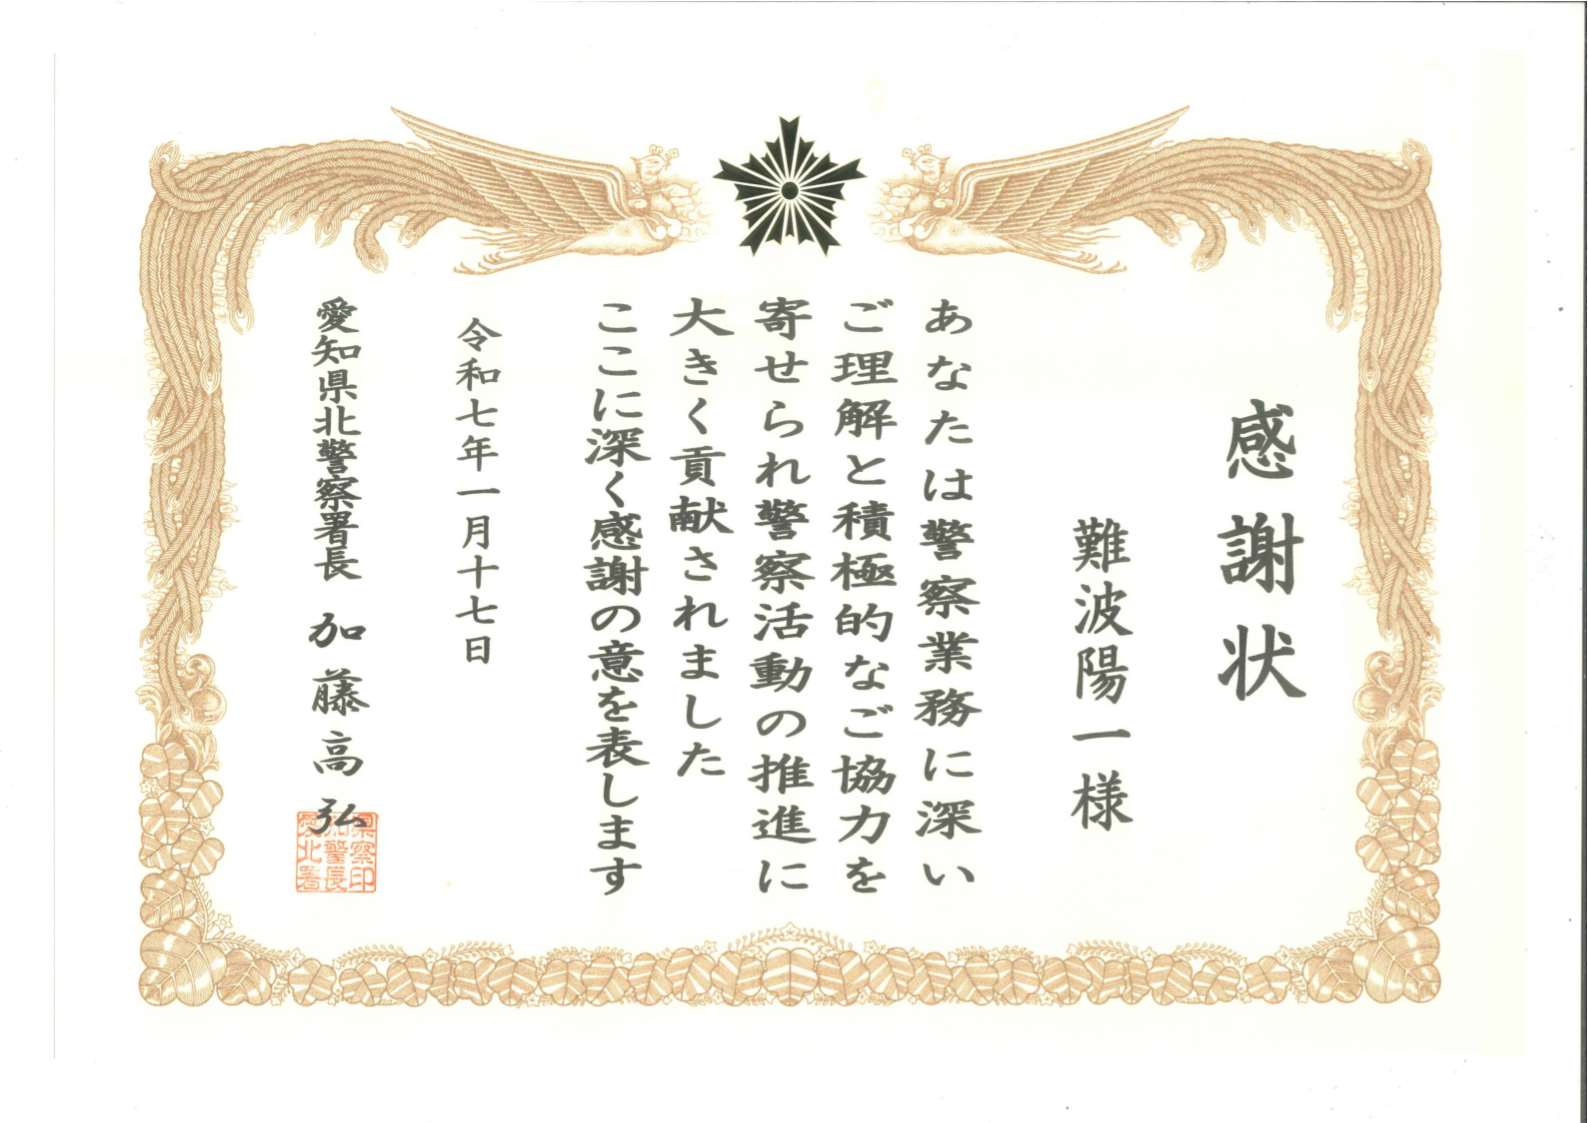 感謝状
難波陽一様
あなたは警察業務に深い
ご理解と積極的なご協力を
寄せられ警察活動の推進に
大きく貢献されました
ここに深く感謝の意を表します
令和七年一月十七日
愛知県北警察署長 加藤高弘